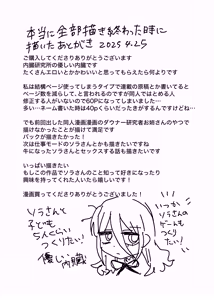 本当に全部描き終わった時に
描いたあとがき 2025 9.25
ご購入してくださりありがとうございます
内臓研究所の優しい内臓です
たくさんエロいとかかわいいと思ってもらえたら何よりです
私は結構ページ使ってしまうタイプで連載の原稿とか書いてると
ページ数を減らして、と言われるのですが同人ではとめる人
修正する人がいないので60Pになってしまいました…
多い…ネーム書いた時は40pくらいだったきがするんですけどね…
でも前回出した同人漫画漫画のダウナー研究者お姉さんのやつで
描けなかったことが描けて満足です
バックが描きたかった！
次は仕事モードのソラさんとかも描きたいですね
牛になったソラさんとセックスする話も描きたいです
いっぱい描きたい
もしこの作品でソラさんのこと知って好きになったり
興味を持ってくれた人いたら嬉しいです！
漫画買ってくださりありがとうございました！
ソラさんと
子ども
5人くらい
つくりたい！
優しい内臓
いつか
ソラさんの
ゲームも
つくり
たい！